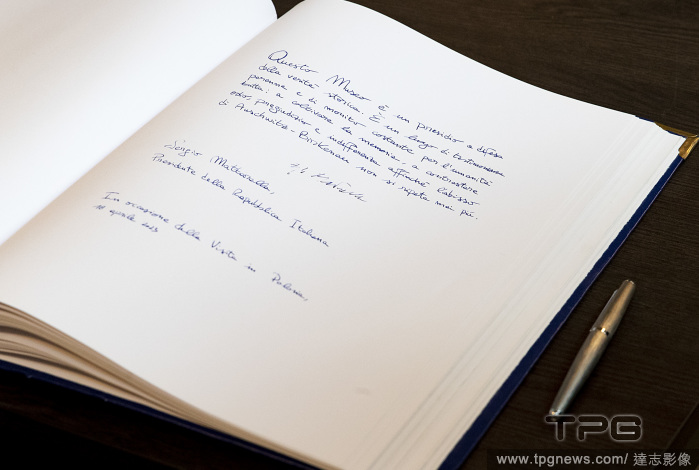 Questo Museo è un presidio a difesa
della verità storica. È un luogo di testimonianza
perenne e di monito costante per l'umanità
tutta: a coltivare la memoria, a contrastare
odio, pregiudizio e indifferenza affinché l'abisso
di Auschwitz-Birkenau non si ripeta mai più.
Sergio Mattarella
Presidente della Repubblica Italiana
In occasione della Visita in Polonia,
18 aprile 2023
TPG
www.tpgnews.com/ 達志影像